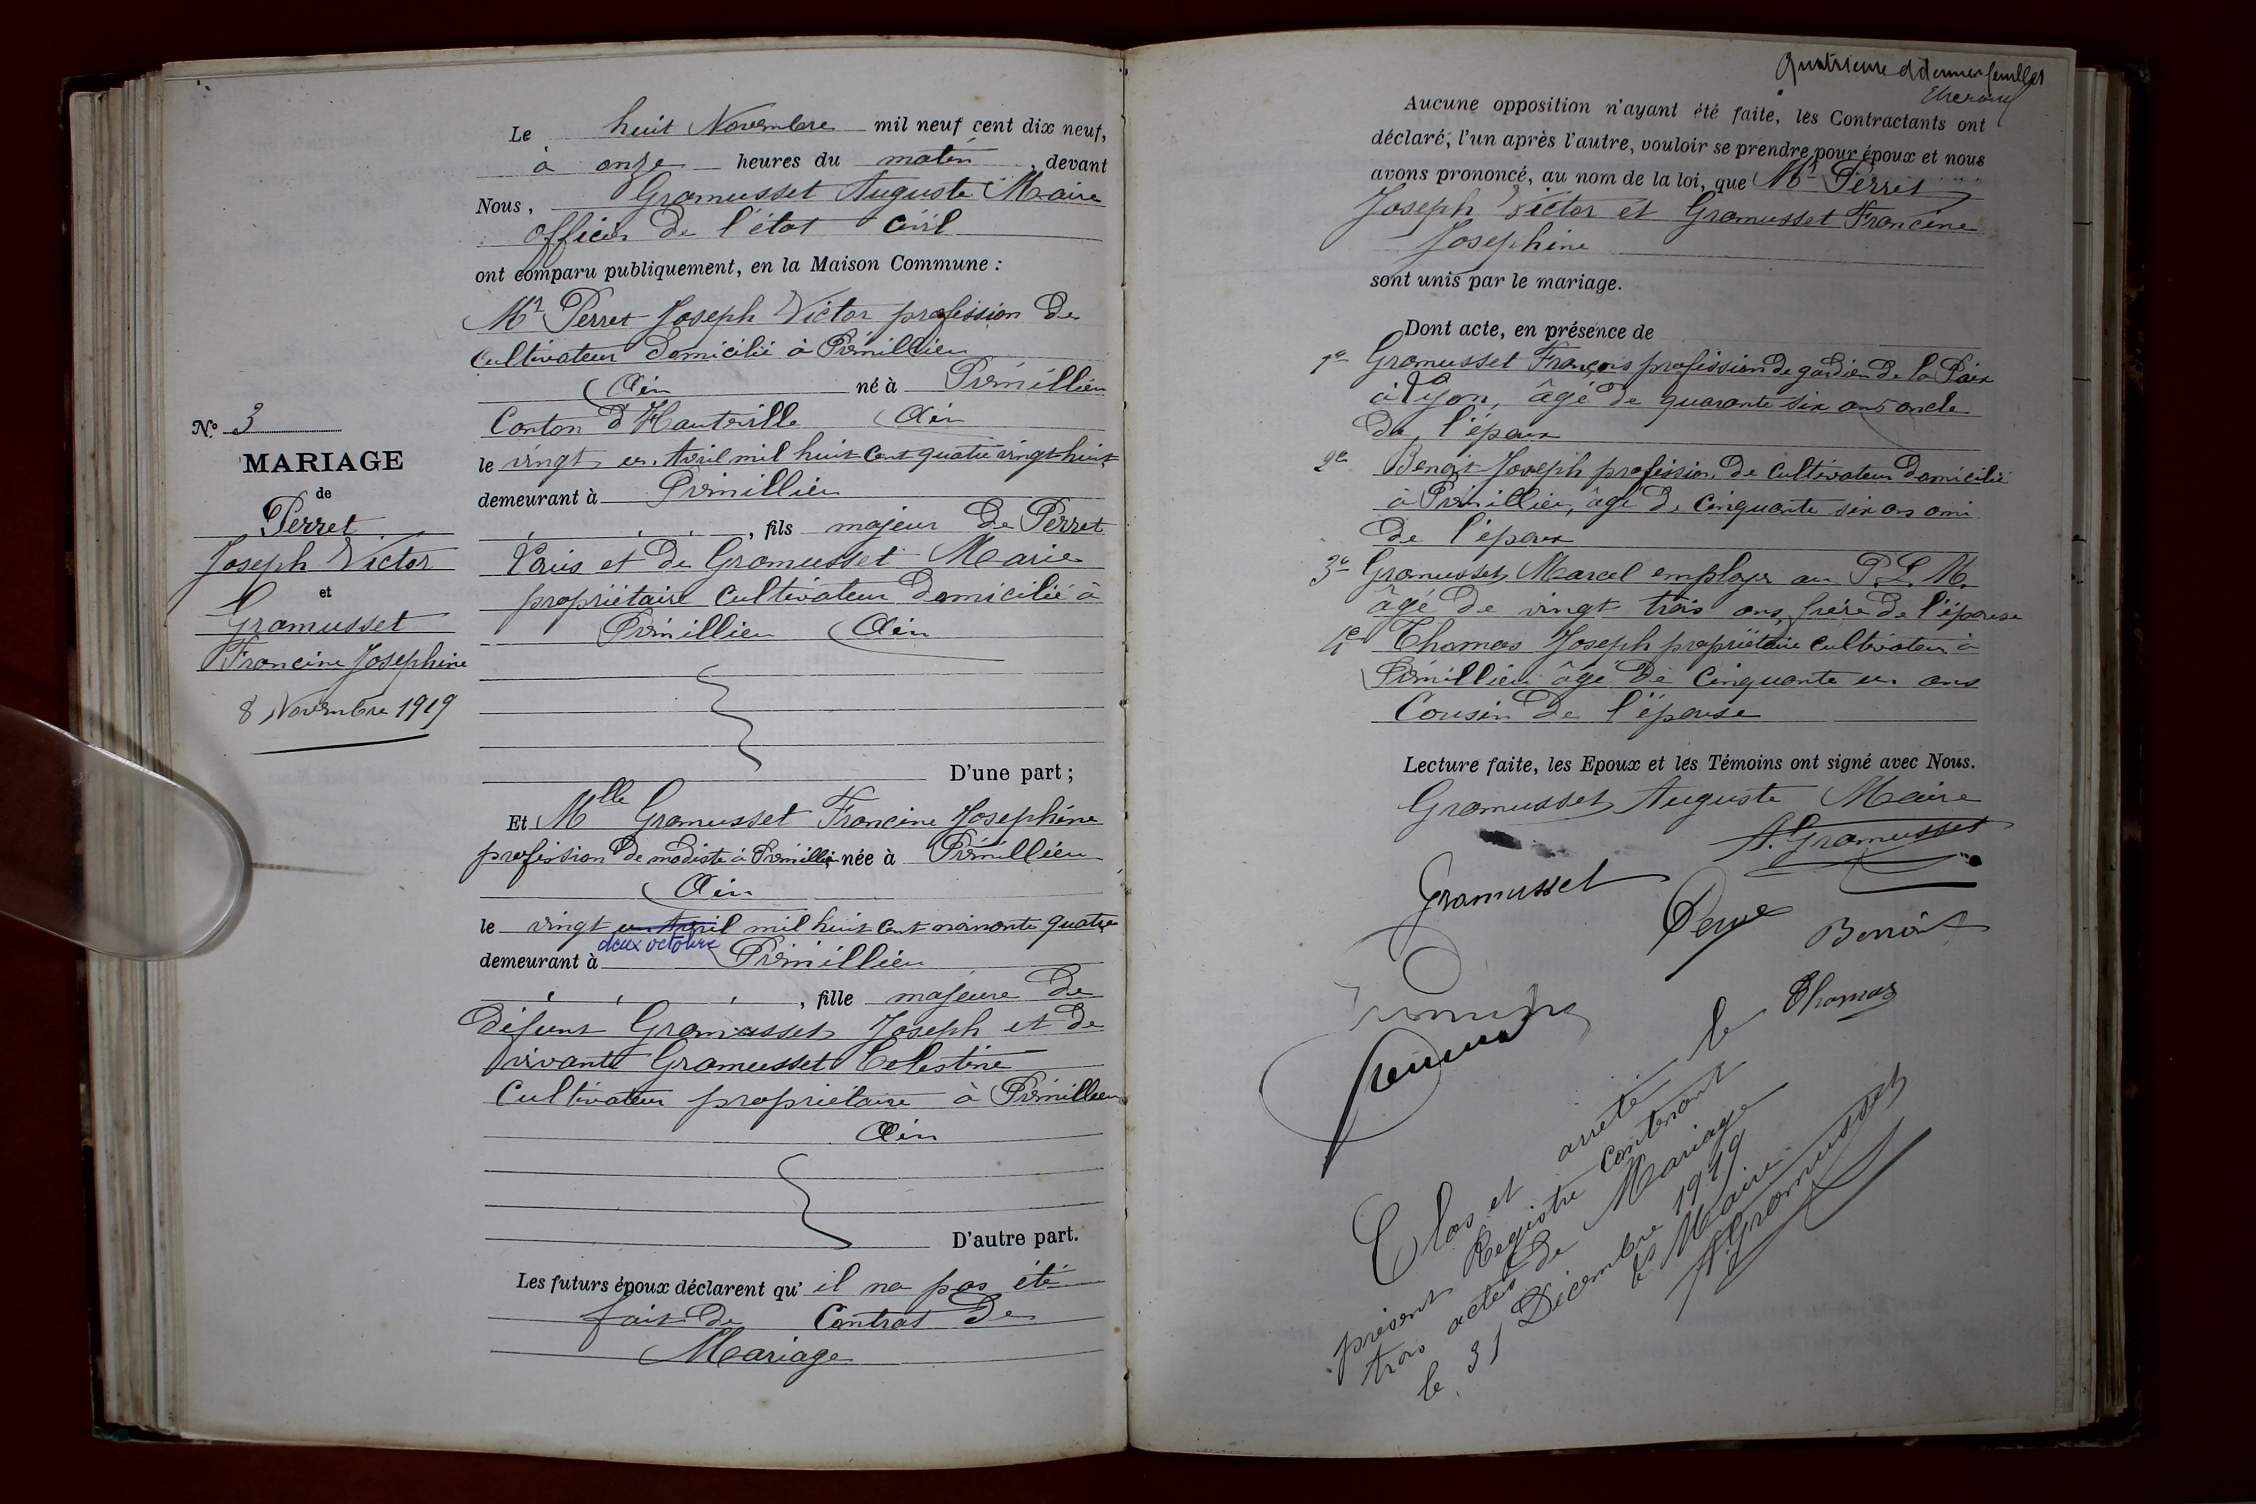 N.º 3
MARIAGE
de
Perret
Joseph Victor
et
Gramusset
Francine Josephine
8 Novembre 1919
Le huit Novembre mil neuf cent dix neuf,
à onze heures du matin, devant
Nous, Gramusset Auguste Maire
officier de l'état civil
ont comparu publiquement, en la Maison Commune :
Mr Perret Joseph Victor profession de
cultivateur domicilié à Prémillieu
(Ain né à Prémillieu
Canton d'Hauteville (Ain
le vingt un Avril mil huit cent quatre vingt huit
demeurant à Prémillieu
, fils majeur de Perret
Louis et de Gramusset Marie
propriétaire cultivateur domicilié à
Prémillieu (Ain
D'une part ;
Et Mlle Gramusset Francine Josephine
profession de modiste à Prémillieu née à Prémillieu
(Ain
le vingt un Avril mil huit cent nonante quatre
deux octobre
demeurant à Prémillieu
, fille majeure de
défunt Gramusset Joseph et de
vivante Gramusset Celestine
Cultivateur propriétaire à Prémillieu
Ain
D'autre part.
Les futurs époux déclarent qu' il na pas été
fait de Contrat de
Mariage
Quatrième et dernier feuillet
Aucune opposition n'ayant été faite, les Contractants ont
déclaré, l'un après l'autre, vouloir se prendre pour époux et nous
avons prononcé, au nom de la loi, que Mr Perret
Joseph Victor et Gramusset Francine
Josephine
sont unis par le mariage.
Dont acte, en présence de
1e Gramusset François profession de gardien de la Paix
à Lyon, âgé de quarante six ans oncle
de l'époux
2e Benoit Joseph profession de cultivateur domicilié
à Prémillieu, âgé de cinquante six ans ami
de l'époux
3e Gramusset Marcel employer au P. L. M.
âgé de vingt trois ans, frère de l'épouse
4e Thomas Joseph propriétaire cultivateur à
Prémillieu âgé de cinquante un ans
Cousin de l'épouse
Lecture faite, les Epoux et les Témoins ont signé avec Nous.
Gramusset Auguste Maire
A. Gramusset
Gramusset
Benoit
Thomas
Clos et arrêté le
présent Registre contenant
trois actes de Mariage
le 31 Décembre 1919
le Maire
A. Gramusset